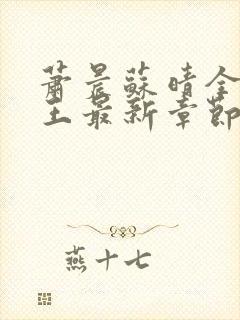 蕭晨蘇晴全
王最新章節
燕十七